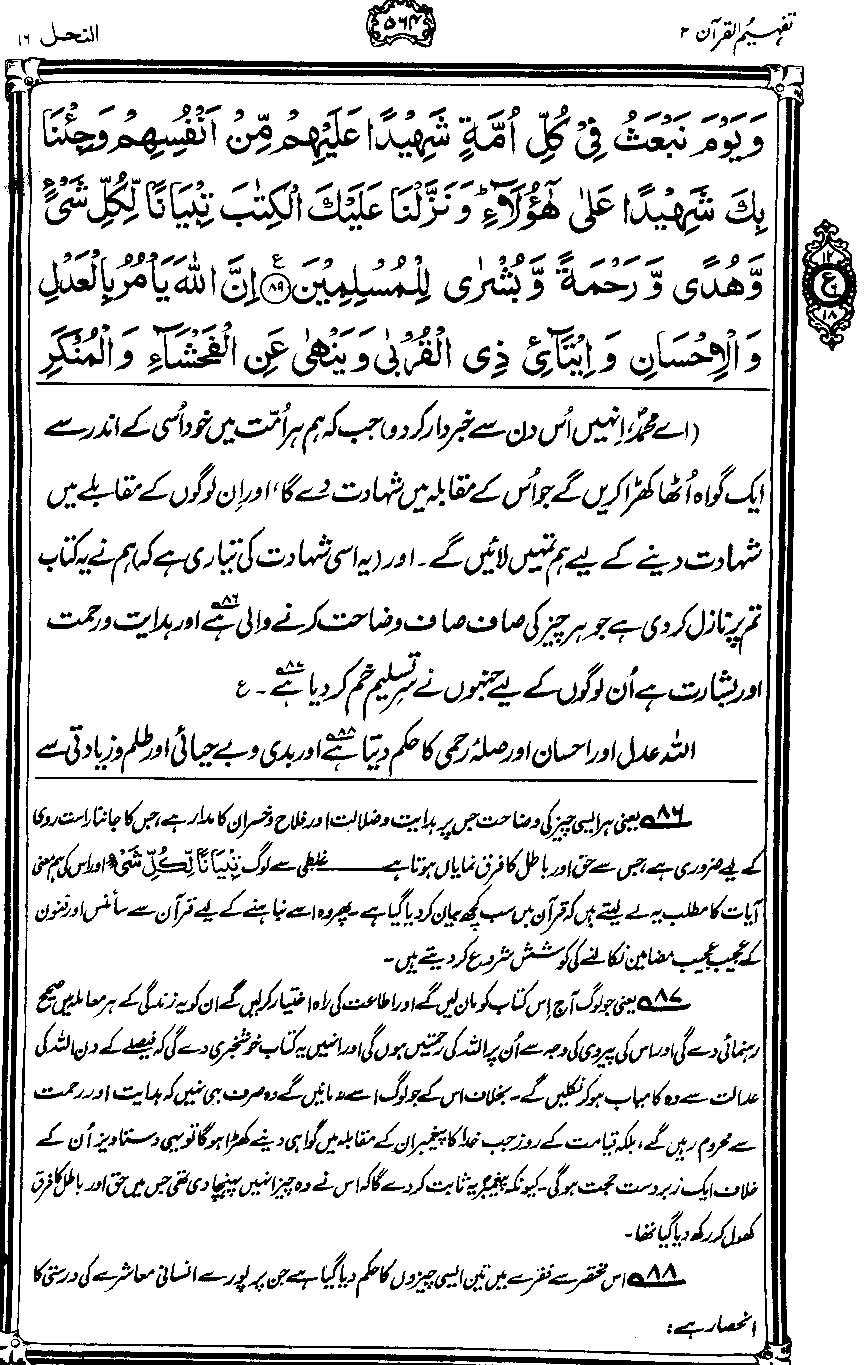 تفہیم القرآن ۲
۵۶۴
النحل ۱۶
وَيَوْمَ نَبْعَثُ فِيْ كُلِّ اُمَّةٍ شَهِيْدًا عَلَيْهِمْ مِّنْ اَنْفُسِهِمْ وَجِئْنَا
بِكَ شَهِيْدًا عَلٰى هٰٓؤُلَآءِ ؕ وَنَزَّلْنَا عَلَيْكَ الْكِتٰبَ تِبْيَانًا لِّكُلِّ شَيْءٍ
وَّهُدًى وَّرَحْمَةً وَّبُشْرٰى لِلْمُسْلِمِيْنَ ﴿۸۹﴾ ع اِنَّ اللّٰهَ يَاْمُرُ بِالْعَدْلِ
وَالْاِحْسَانِ وَاِيْتَآئِ ذِي الْقُرْبٰى وَيَنْهٰى عَنِ الْفَحْشَآءِ وَالْمُنْكَرِ
۱۲
ع
۱۸
(اے محمدؐ، اِنہیں اُس دن سے خبردار کر دو) جب کہ ہم ہر اُمّت میں خود اُسی کے اندر سے
ایک گواہ اُٹھا کھڑا کریں گے جو اُس کے مقابلہ میں شہادت دے گا، اور اِن لوگوں کے مقابلے میں
شہادت دینے کے لیے ہم تمہیں لائیں گے۔ اور (یہ اسی شہادت کی تیاری ہے کہ) ہم نے یہ کتاب
تم پر نازل کر دی ہے جو ہر چیز کی صاف صاف وضاحت کرنے والی ہے۸۶ اور ہدایت و رحمت
اور بشارت ہے اُن لوگوں کے لیے جنہوں نے سرِ تسلیم خم کر دیا ہے۸۷۔ ع
اللہ عدل اور احسان اور صلۂ رحمی کا حکم دیتا ہے۸۸ اور بدی و بے حیائی اور ظلم و زیادتی سے
۸۶ یعنی ہر ایسی چیز کی وضاحت جس پر ہدایت و ضلالت اور فلاح و خسران کا مدار ہے، جس کا جاننا راست روی
کے لیے ضروری ہے، جس سے حق اور باطل کا فرق نمایاں ہوتا ہے ــــــ غلطی سے لوگ تِبْيَانًا لِّكُلِّ شَيْءٍ اور اس کی ہم معنی
آیات کا مطلب یہ لے لیتے ہیں کہ قرآن میں سب کچھ بیان کر دیا گیا ہے۔ پھر وہ اسے نباہنے کے لیے قرآن سے سائنس اور فنون
کے عجیب عجیب مضامین نکالنے کی کوشش شروع کر دیتے ہیں۔
۸۷ یعنی جو لوگ آج اِس کتاب کو مان لیں گے اور اطاعت کی راہ اختیار کر لیں گے ان کو یہ زندگی کے ہر معاملہ میں صحیح
رہنمائی دے گی اور اس کی پیروی کی وجہ سے اُن پر اللہ کی رحمتیں ہوں گی اور انہیں یہ کتاب خوشخبری دے گی کہ فیصلے کے دن اللہ کی
عدالت سے وہ کامیاب ہو کر نکلیں گے۔ بخلاف اس کے جو لوگ اسے نہ مانیں گے وہ صرف یہی نہیں کہ ہدایت اور رحمت
سے محروم رہیں گے، بلکہ قیامت کے روز جب خدا کا پیغمبر ان کے مقابلہ میں گواہی دینے کھڑا ہوگا تو یہی دستاویز اُن کے
خلاف ایک زبردست حجت ہوگی۔ کیونکہ پیغمبر یہ ثابت کر دے گا کہ اس نے وہ چیز انہیں پہنچا دی تھی جس میں حق اور باطل کا فرق
کھول کر رکھ دیا گیا تھا۔
۸۸ اس مختصر سے فقرے میں تین ایسی چیزوں کا حکم دیا گیا ہے جن پر پورے انسانی معاشرے کی درستی کا
انحصار ہے: